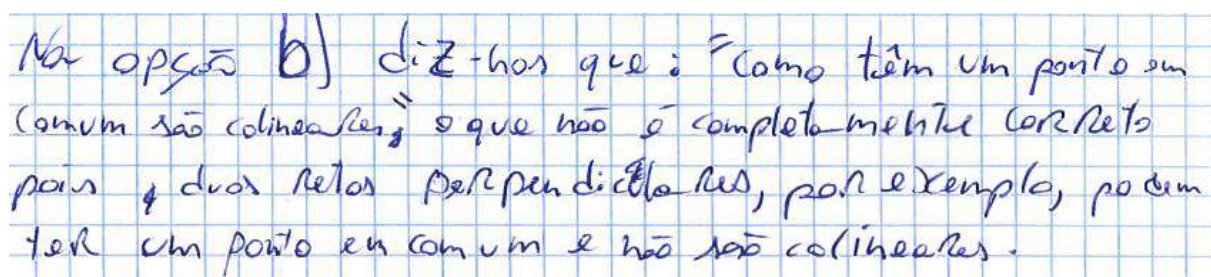 Na opção b) diz-nos que: "Como têm um ponto em
comum são colineares", o que não é completamente correto
pois, duas retas perpendiculares, por exemplo, podem
ter um ponto en comum e não são colineares.